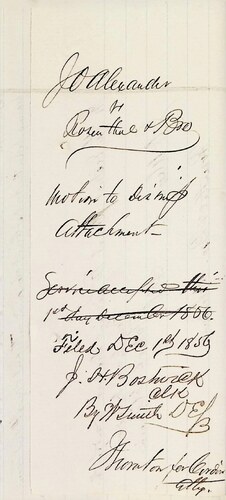 J O Alexander
vs
Rosenthal & Bro
Motion to dismiss
Attachment
Service accepted this
1st day December 1856.
Filed DEC 1st 1856
J. H. Bostwick
Clk
By W Smith D
Thornton for
Atty.